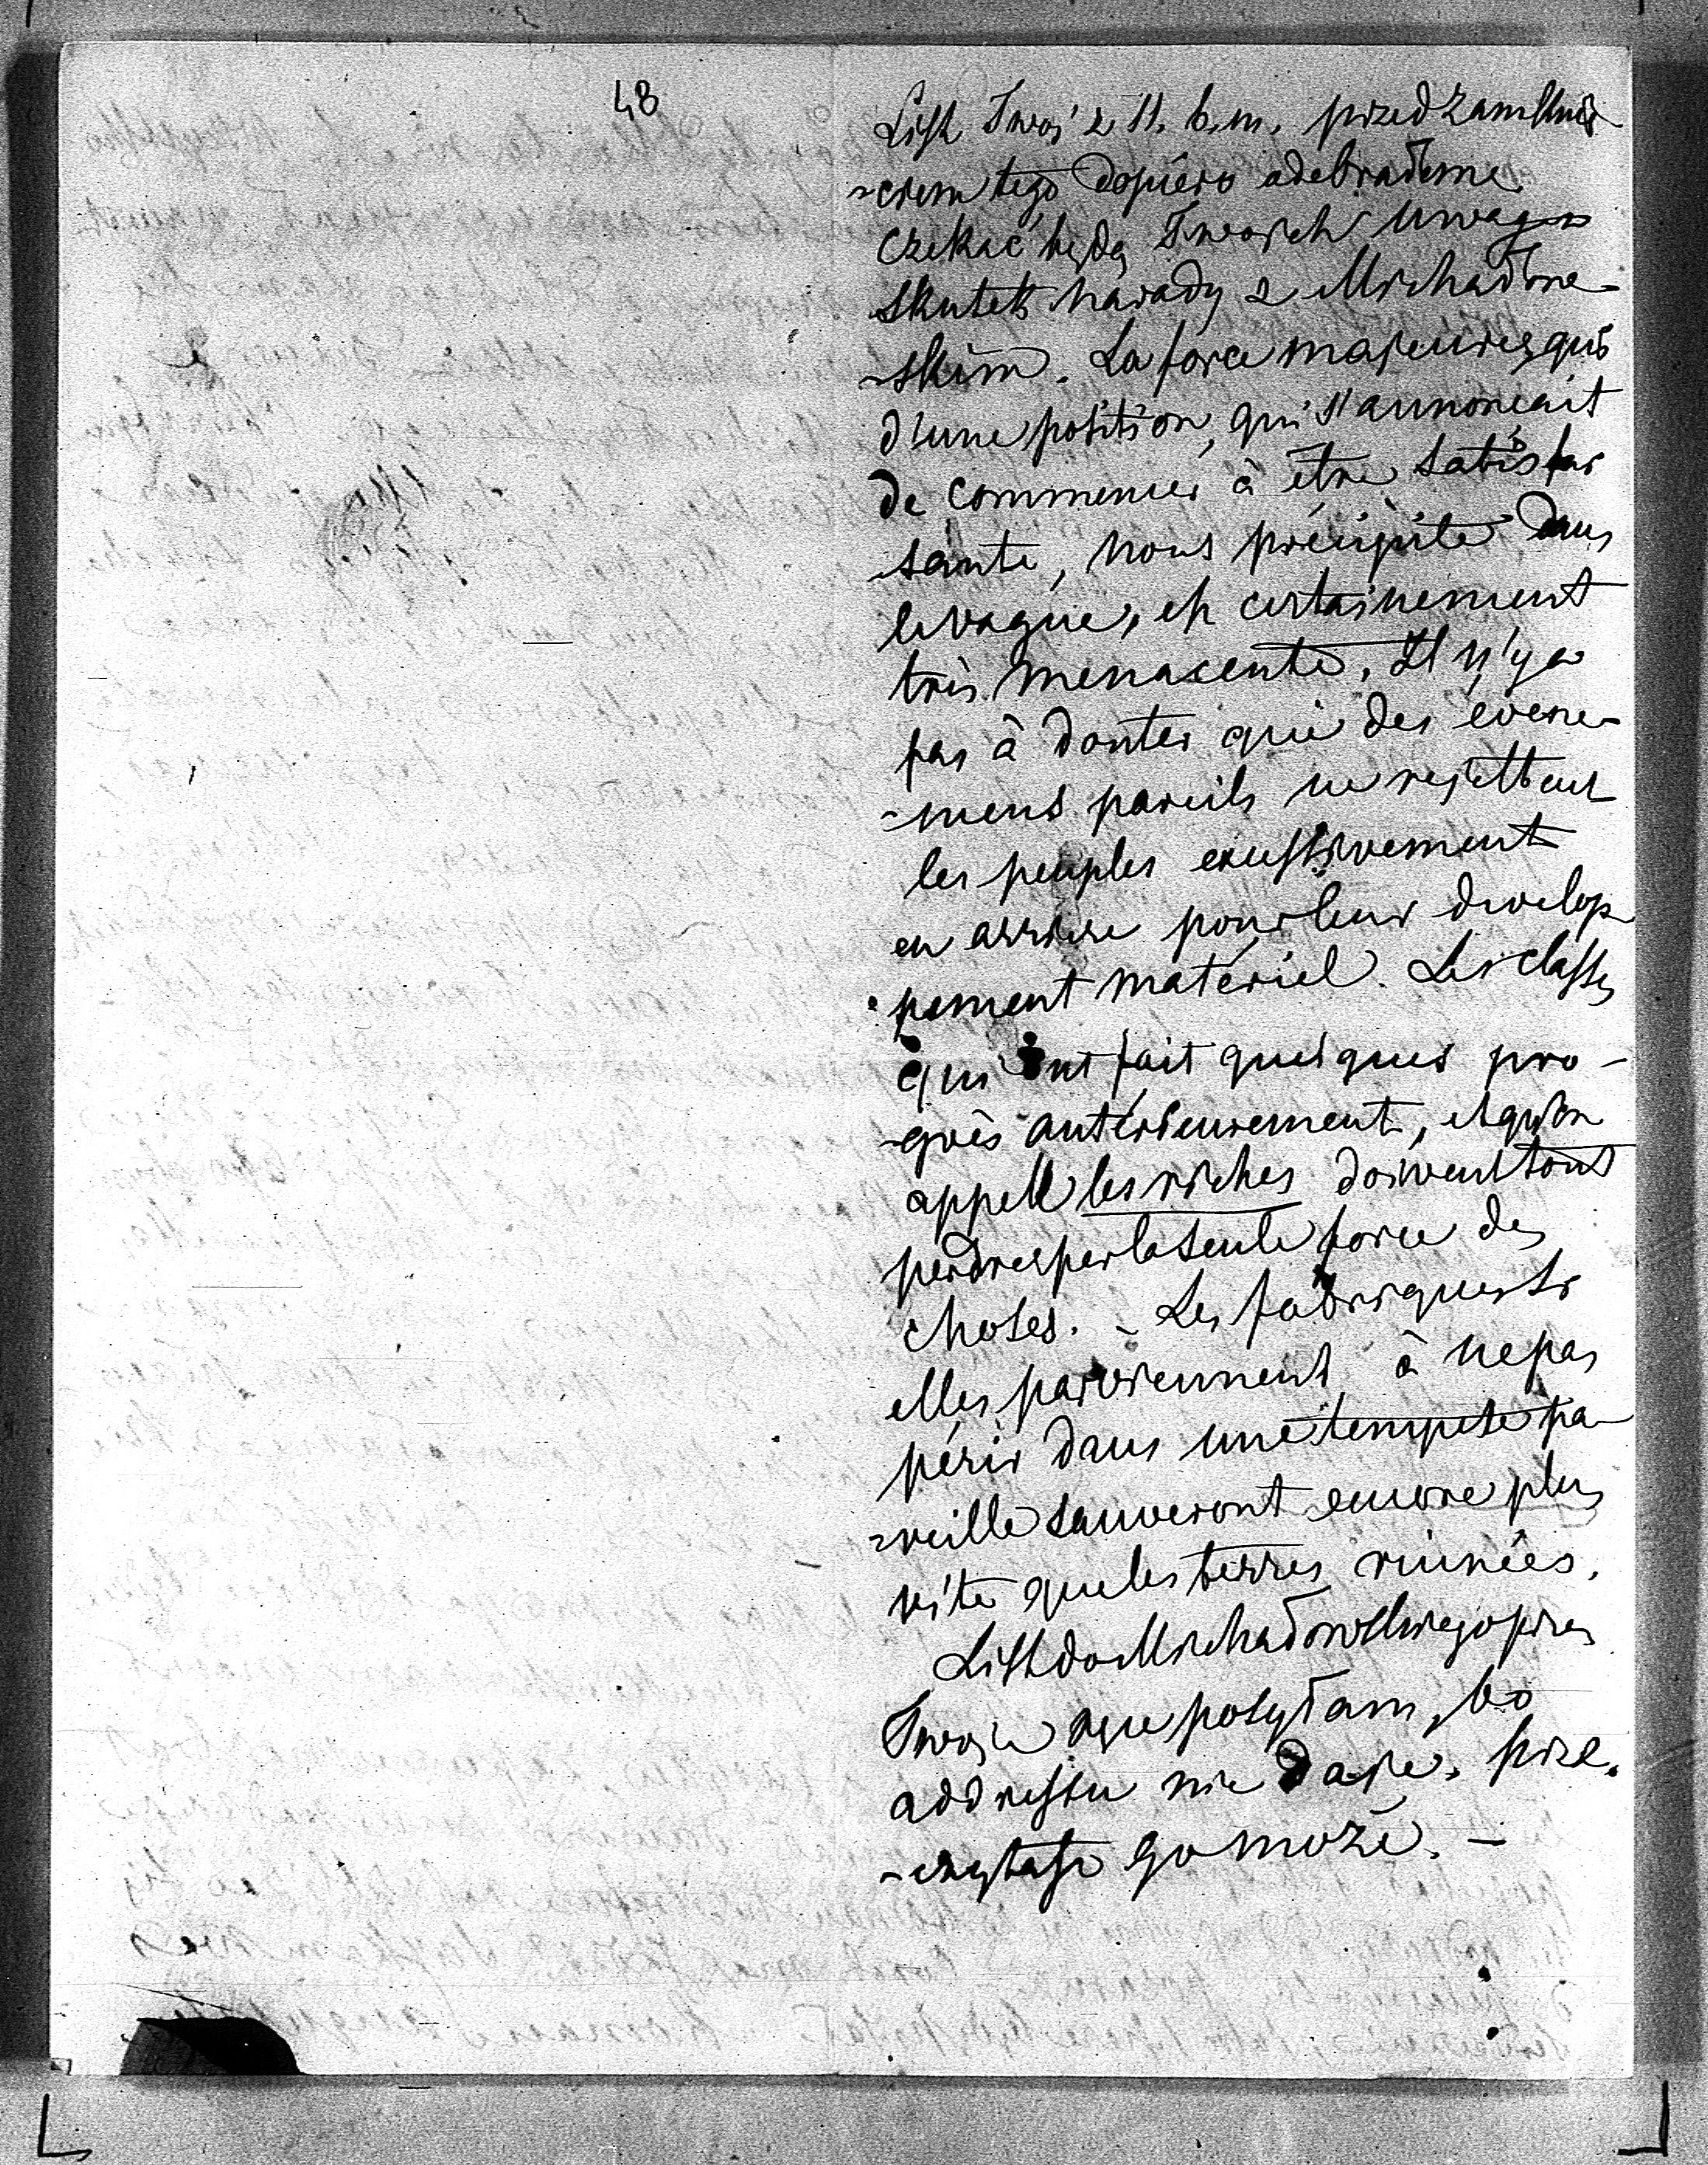 48
List Twoj z 11. b.m. przed zamknię-
-ciem tego dopiéro odebrałem
czekać będę Twoich uwag
skutek narady z Michałow-
-skim. La force majeure, qui
d'une position, qui s'annonçait
de commencer à être satisfai
sante, nous précipite dans
le vague, et certainement
très menacente. Il n'y a
pas à douter que des évene-
-mens pareils ne rejettent
les peuples excessivement
en arriere pour leur develop-
pement matériel. Les classes
qui ont fait quelques pro-
-grès antérieurement, et qu'on
appell les riches doivent tout
perdre par la seule force des
choses. - Les fabriques si
elles parviennent à ne pas
périr dans une tempete pa-
-reille sauveront encore plus
vite que les terres ruinées.
List do Michałowskiego przez
Twoje ręce posyłam, bo
addressu nie daje. prze-
-czytać go może. -